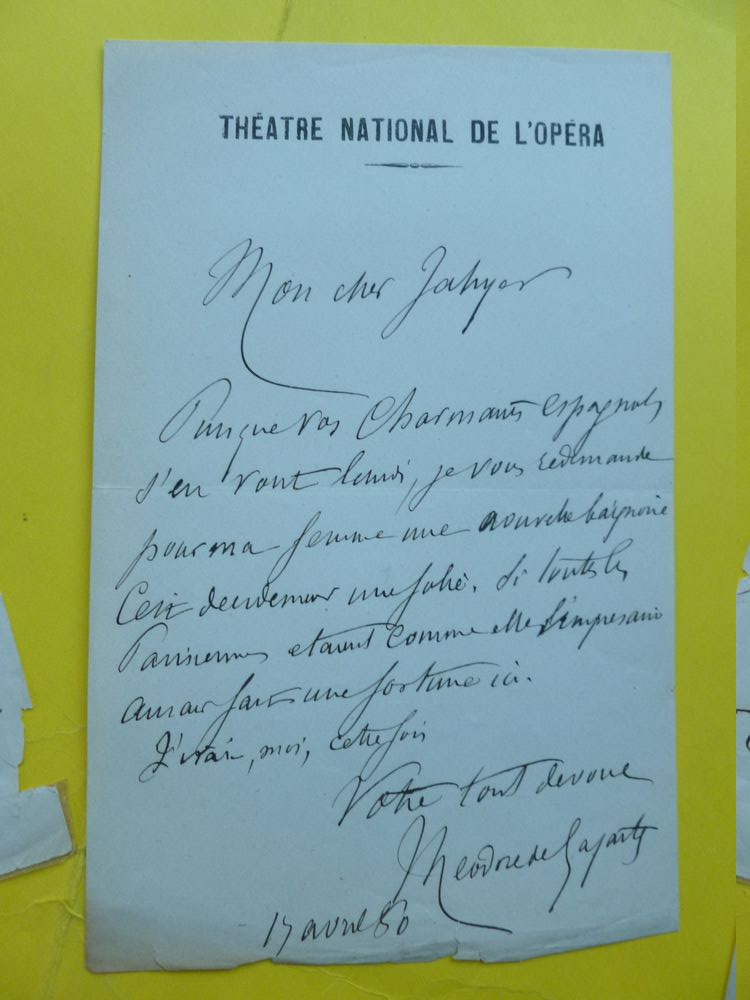 THÉATRE NATIONAL DE L'OPÉRA
Mon cher Jahyer
Puisque vos Charmants espagnols
s'en vont lundi, je vous redemande
pour ma femme une nouvelle baignoire
C'est decidement une folie. Si toutes les
Parisiennes etaient comme elle l'impresario
aurait fait une fortune ici.
J'irai, moi, cette fois
Votre tout devoué
Theodore de Lajarte
17 avril 80